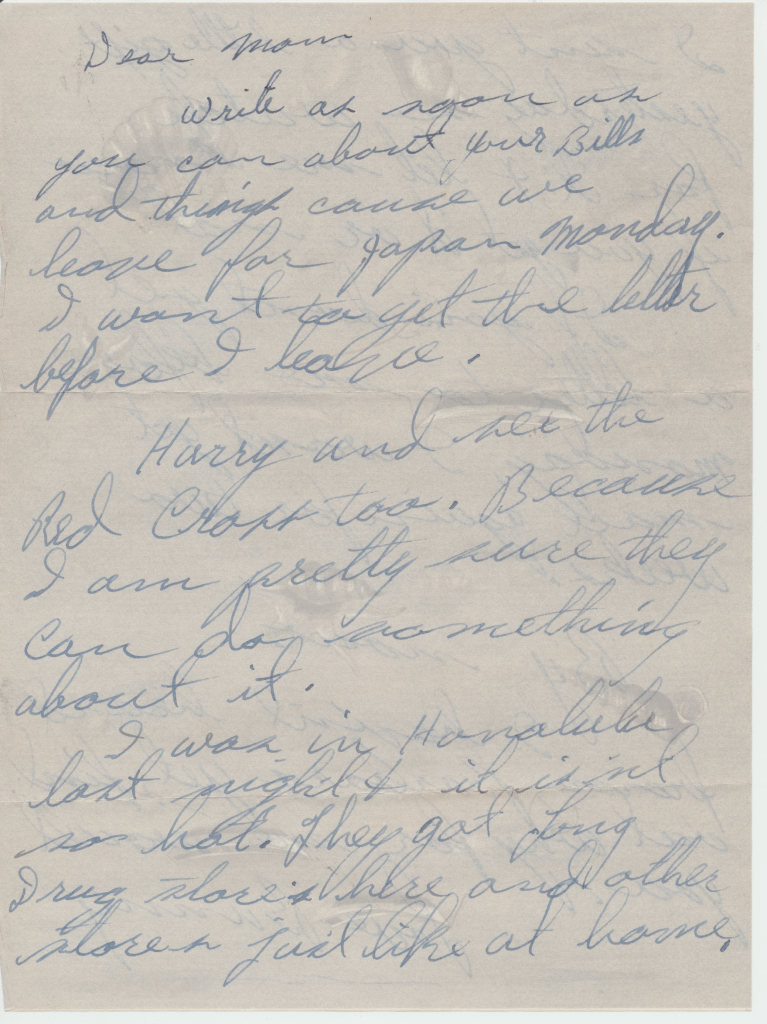 Dear Mom
Write as soon as
you can about your Bills
and things cause we
leave for Japan Monday.
I want to get the letter
before I leave.
Harry and see the
Red Cross too. Because
I am pretty sure they
can do something
about it.
I was in Honalulu
last night & it isint
so hot. They got
Drug stores here and other
stores just like at home.